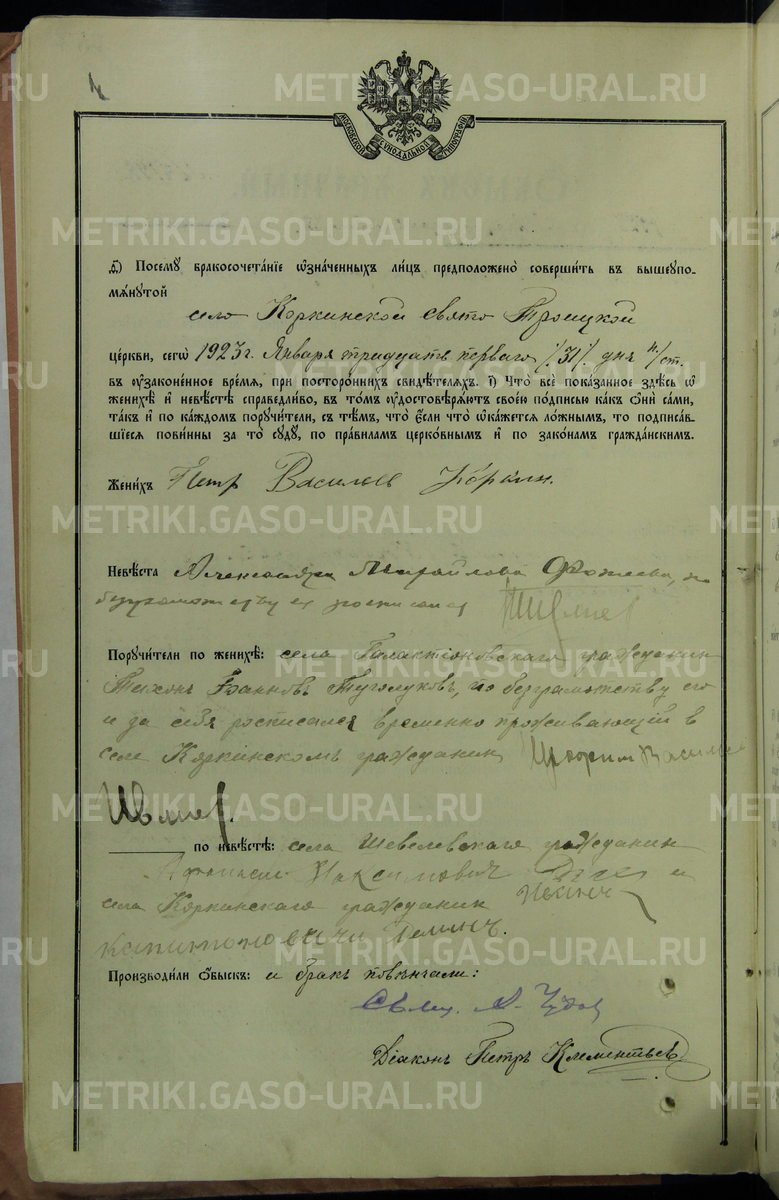 4
МОСКОВСКОЙ СѴНОДАЛЬНОЙ ТИПОГРАФІИ
з҃) Посемꙋ бракосочета́нїе ѡ҆зна́ченныхъ ли́цъ предположено̀ соверши́ть въ вышеꙋпо-
мѧ́нꙋтой
село Коркинской Свято Троицкой
це́ркви, сегѡ̀ 1923 г. Января тридцать перваго /31/ дня н/ст.
въ ᲂу҆зако́ненное вре́мѧ, при посторо́ннихъ свидѣ́телѧхъ. и҃) Что̀ всѐ пока́занное здѣ́сь ѡ҆
женихѣ̀ и҆ невѣ́стѣ справедли́во, въ то́мъ ᲂу҆достовѣрѧ́ютъ свое́ю по́дписью ка́къ ѻ҆нѝ са́ми,
та́къ и҆ по ка́ждомъ порꙋчи́тели, съ тѣ́мъ, что̀ є҆́сли что̀ ѡ҆ка́жетсѧ ло́жнымъ, то подписа́в-
шїесѧ пови́нны за то̀ сꙋдꙋ̀, по пра́виламъ церко́внымъ и҆ по зако́намъ гражда́нскимъ.
Жени́хъ Петр Васильев Коркин.
Невѣ́ста Александра Михайлова Фотеева, по
безграмотству ея росписался
Порꙋчи́тели по женихѣ̀: села Галактіоновскаго гражданин
Тихонъ Іоанновъ Туголуковъ, по безграмотству его
и за себя росписался временно проживающій в
селе Коркинскомъ гражданин
по невѣ́стѣ: села Шевелевскаго гражданин
Максимович и
села Коркинскаго гражданин
Капитонович
Производи́ли ѻ҆́быскъ: и бракъ повѣнчали:
Свящ.
Діаконъ Петръ Клементьев
METRIKI.GASO-URAL.RU